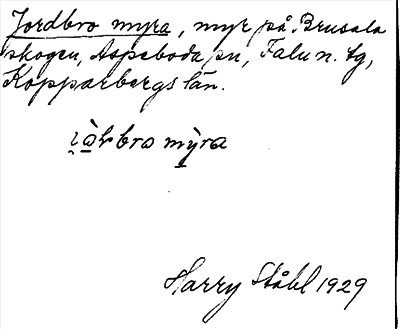 Jordbro myra, myr på Brusala
skogen, Aspeboda sn, Falu n. tg,
Kopparbergs län.
i̯ò̠ɽbro mẏ̠ra
Harry Ståhl 1929